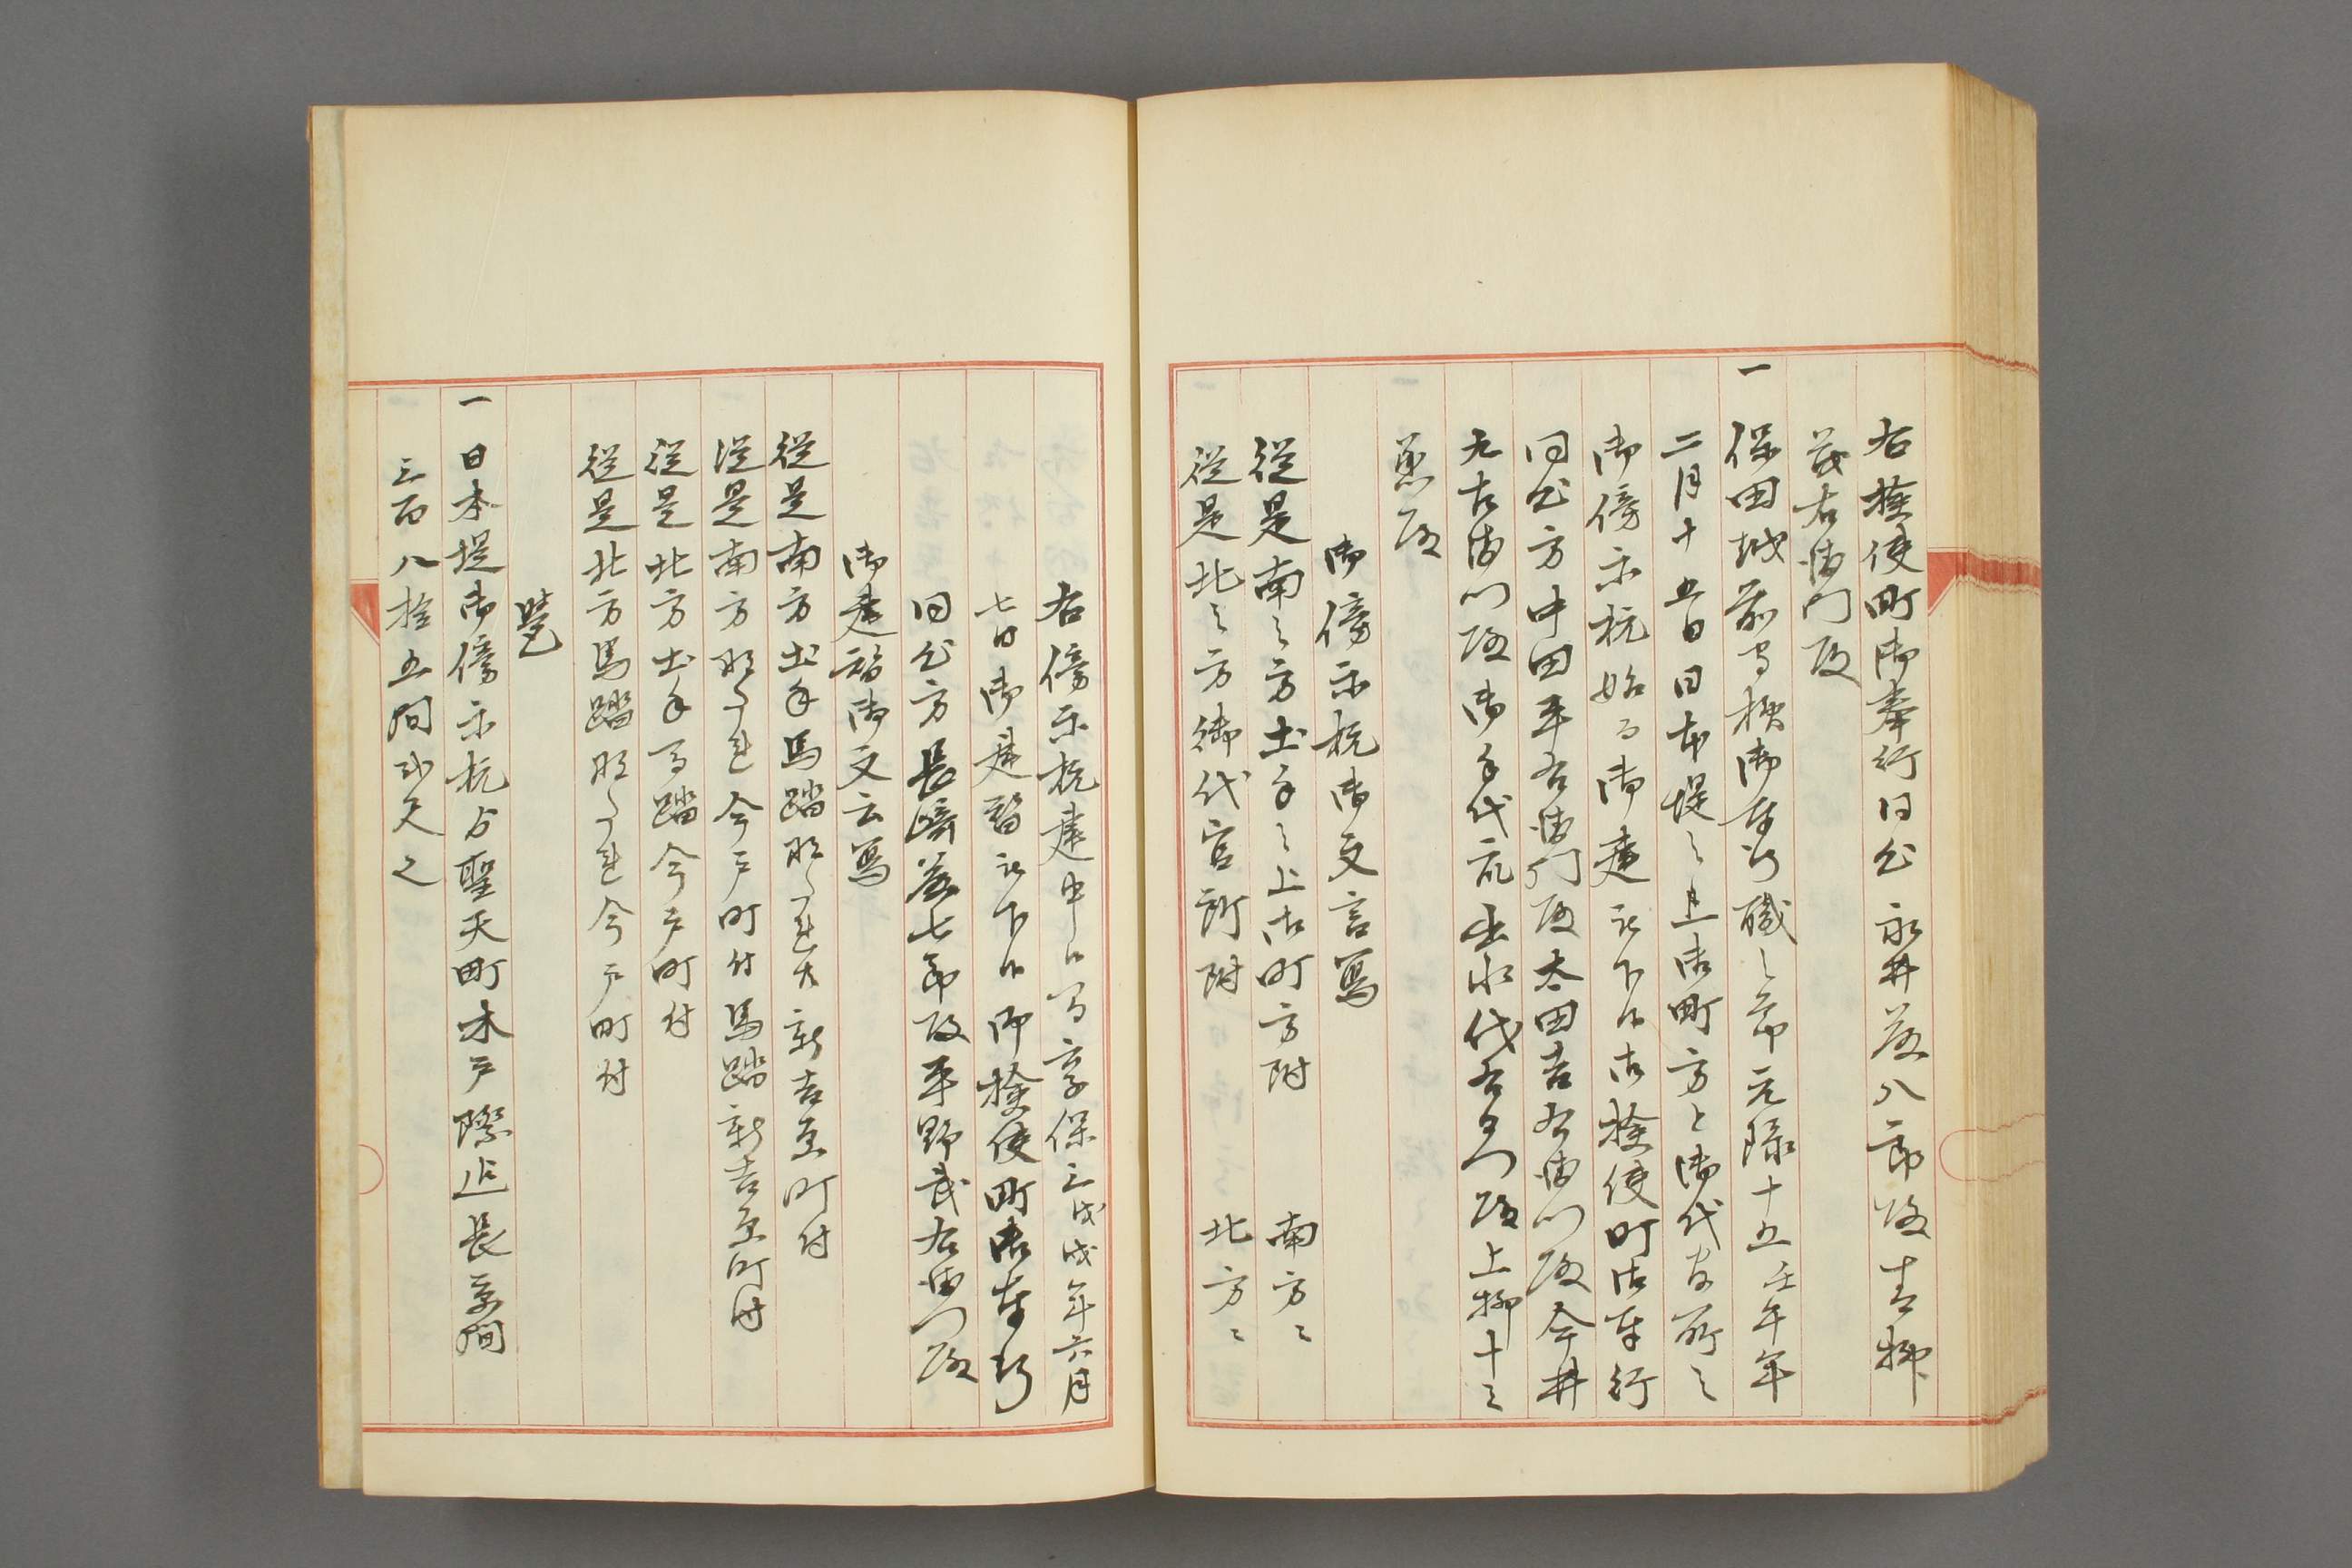 右検使町御奉行同心永井茂八郎殿青柳
茂右衛門殿
一保田越前守様御奉行職之節元禄十五壬午年
二月十五日日本堤之上御町方と御代官所之
御傍示杭始而御建被下候御検使町御奉行
同心方中田平右衛門殿太田吉右衛門殿今井
九右衛門殿御手代衆出水代右衛門殿上柳十之
丞殿
御傍示杭御文言写
従是南之方土手之上御町方附 南方ニ
従是北之方御代官所附 北方ニ
右傍示杭建申候而享保三戊戌年六月
七日御建替被下候御検使町御奉行
同心方長崎茂七郎殿平野武右衛門殿
御建替御文言写
従是南方土手馬踏新吉原町付
従是南方今戸町付馬踏新吉原町付
従是北方土手馬踏今戸町付
従是北方馬踏今戸町付
覚
一日本堤御傍示杭ゟ聖天町木戸際迄長京間
三百八拾五間弐尺之